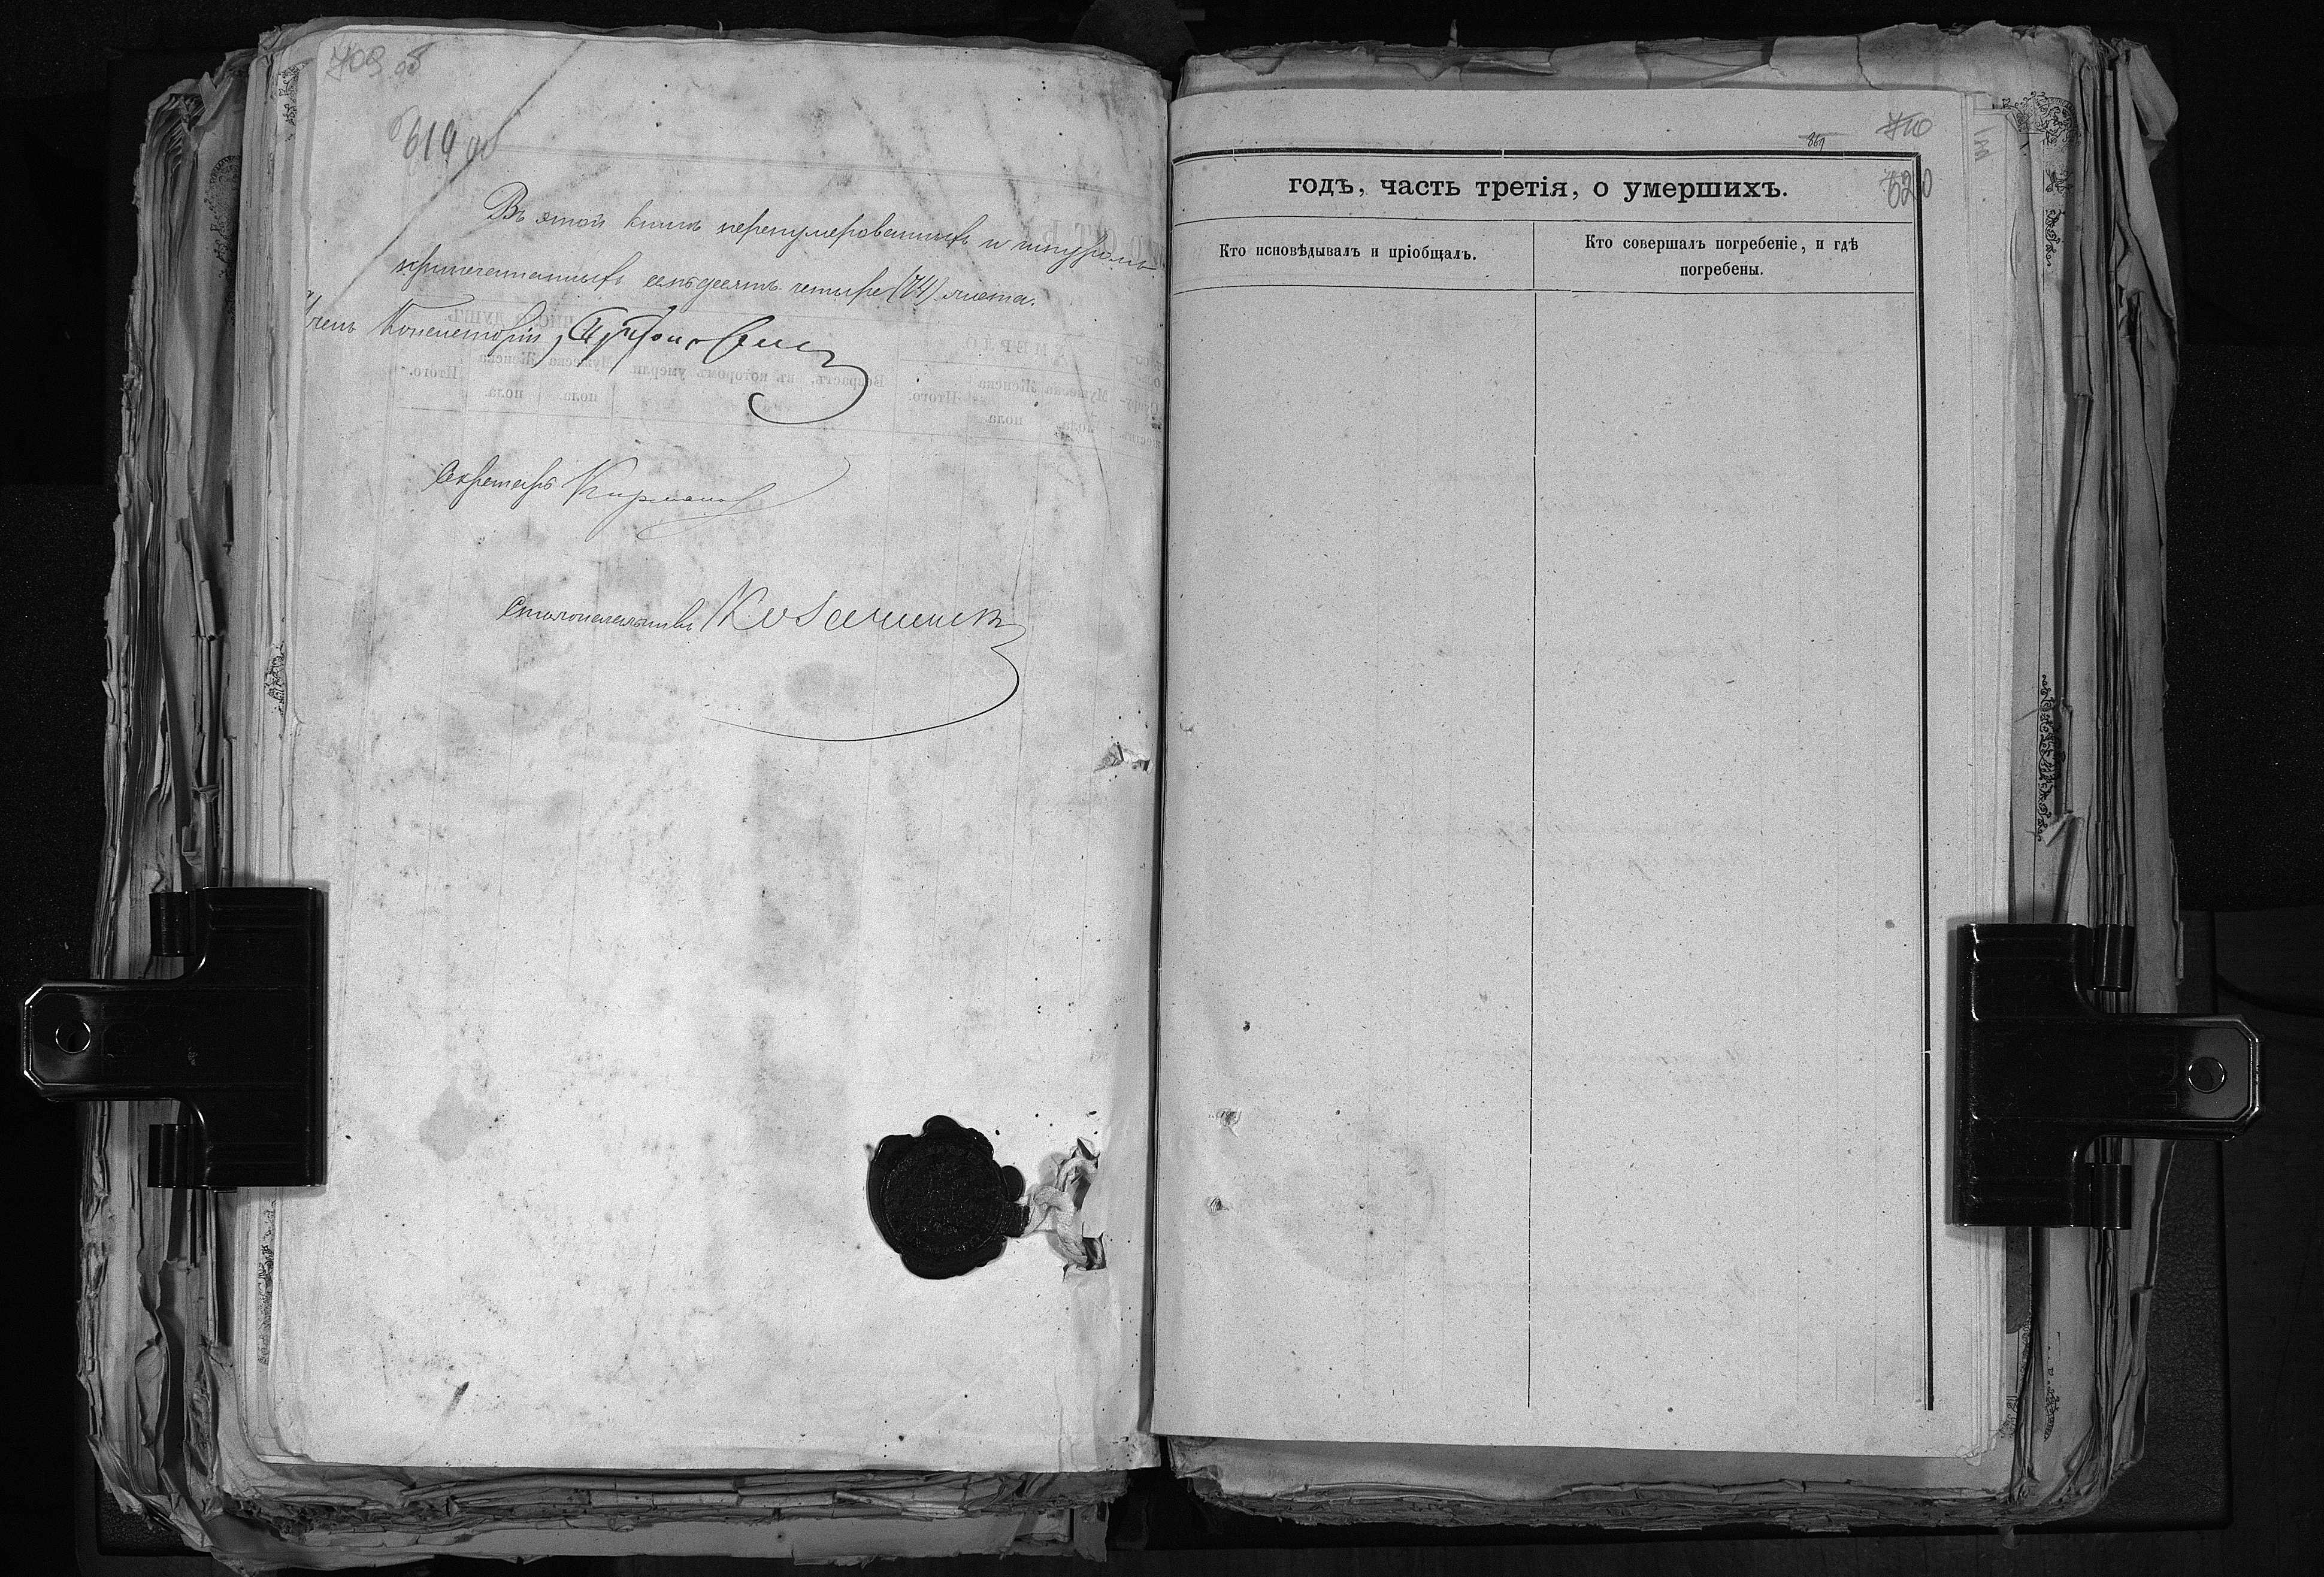 709 об
619 об
Въ этой книгѣ перенумерованныхъ и шнуромъ
припечатанныхъ семьдесятъ четыре (74) листа.
Членъ Консисторіи,
Секретарь
Столоначальникъ
710
620
годъ, часть третія, о умершихъ.
Кто исповѣдывалъ и пріобщалъ.
Кто совершалъ погребеніе, и гдѣ
погребены.